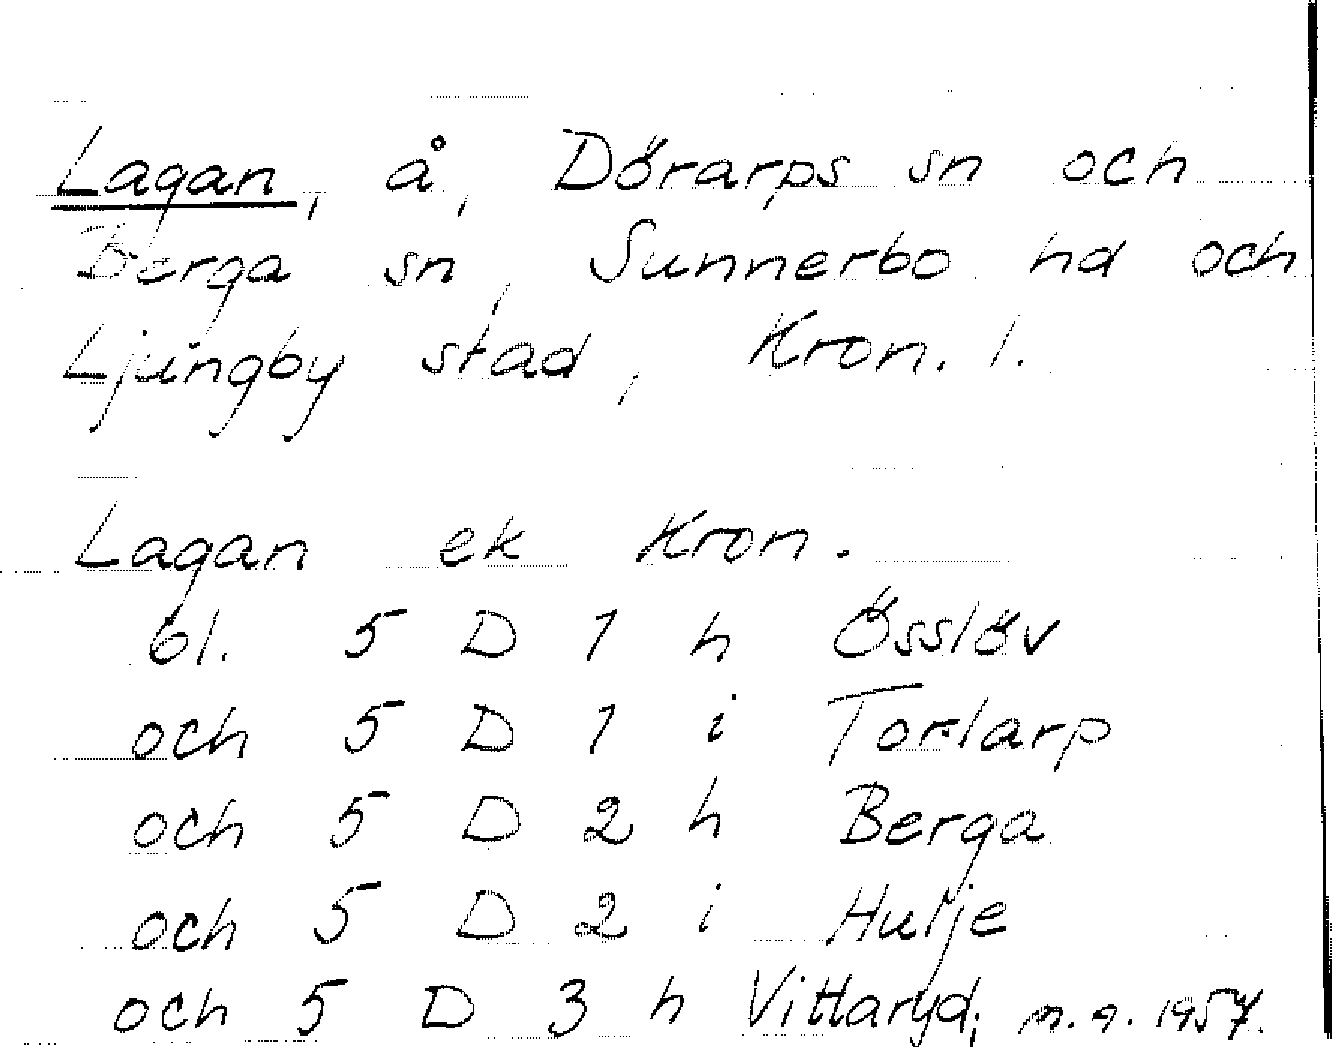 Lagan, å, Dörarps sn och
Berga sn, Sunnerbo hd och
Ljungby stad, Kron. l.
Lagan ek Kron.
bl. 5 D 1 h Össlöv
och 5 D 1 i Torlarp
och 5 D 2 h Berga
och 5 D 2 i Hulje
och 5 D 3 h Vittaryd, 1957.